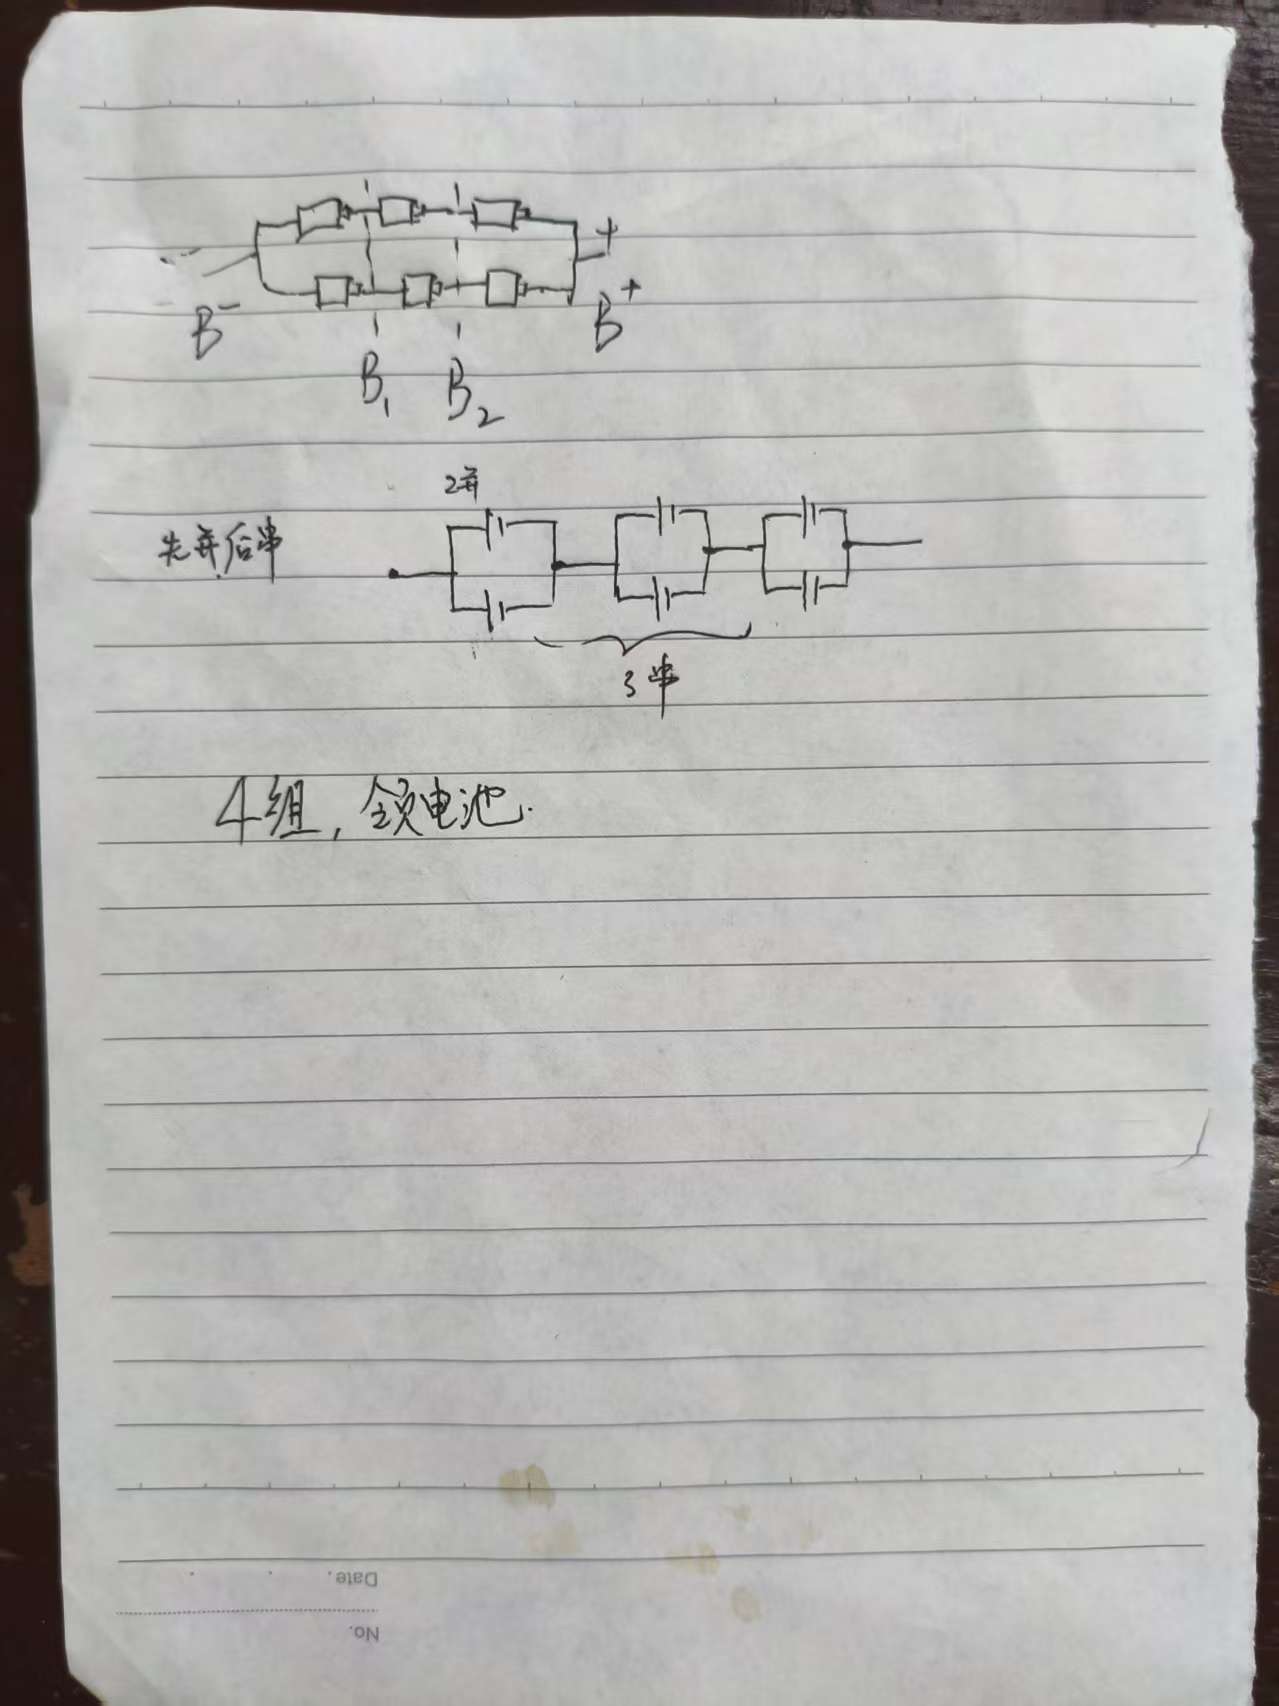 +
B- B1 B2 B+
2并
先并后串
3串
4组, 领电池.
Date.
No.